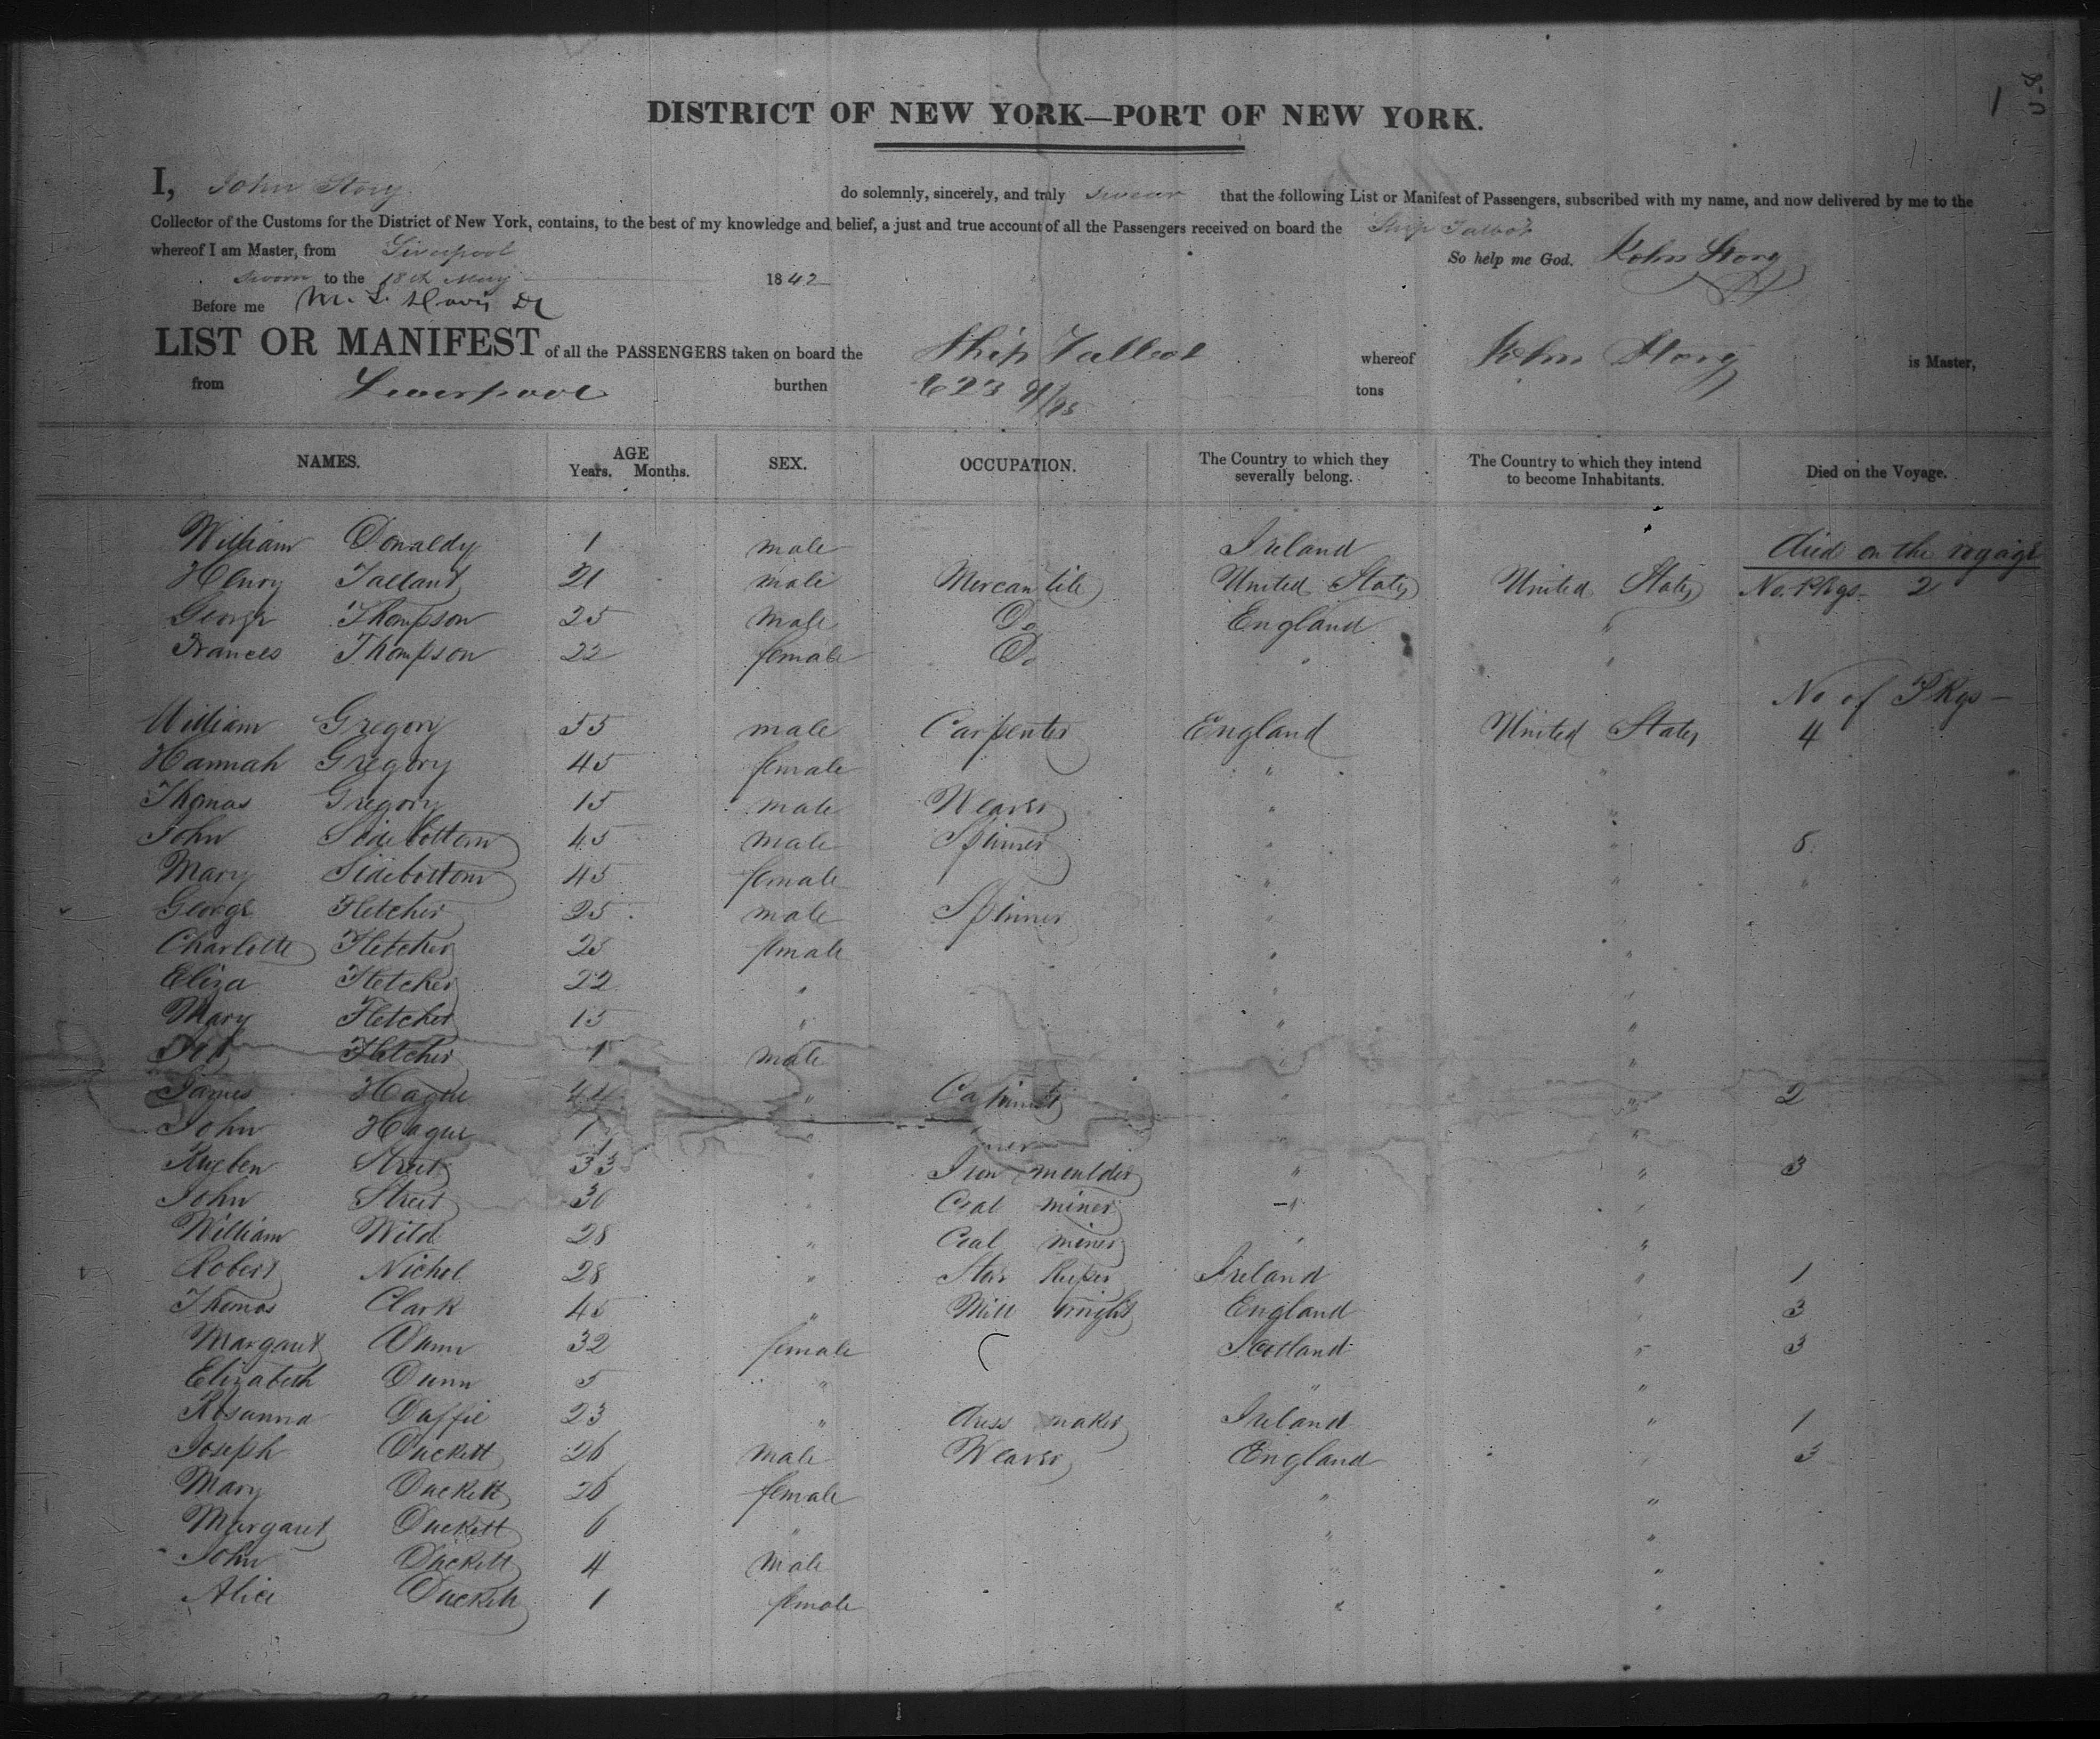 1
DISTRICT OF NEW YORK—PORT OF NEW YORK.
I, John Story do solemnly, sincerely, and truly swear that the following List or Manifest of Passengers, subscribed with my name, and now delivered by me to the
Collector of the Customs for the District of New York, contains, to the best of my knowledge and belief, a just and true account of all the Passengers received on board the Ship Talbot
whereof I am Master, from Liverpool So help me God. John Story
sworn to the 18th May 1842
Before me M. L. Davis
LIST OR MANIFEST of all the PASSENGERS taken on board the Ship Talbot whereof John Story is Master,
from Liverpool burthen 623 91/95 tons
NAMES. AGE Years. Months. SEX. OCCUPATION. The Country to which they severally belong. The Country to which they intend to become Inhabitants. Died on the Voyage.
William Donaldy 1 male Ireland died on the voyage
Henry Tallant 21 male Mercantile United States United States No. Pkgs. 2
George Thompson 25 male Do England "
Frances Thompson 22 female Do " "
No of Pkgs —
William Gregory 55 male Carpenter England United States 4
Hannah Gregory 45 female " "
Thomas Gregory 15 male Weaver " "
John Sidebottom 45 male Spinner " "
Mary Sidebottom 45 female " " "
George Fletcher 25 male Spinner " "
Charlotte Fletcher 28 female " "
Eliza Fletcher 22 " " "
Mary Fletcher 15 " " "
Fletcher 1 male " "
James Hague 44 " " " 2
John Hague 1 " " "
Rueben Street 33 " Iron moulder " " 3
John Street 30 " Coal miner " "
William Wild 28 " Coal miner " "
Robert Nichol 28 " Keeper Ireland " 1
Thomas Clark 45 " Mill wright England " 3
Margaret Dunn 32 female Scotland " 3
Elizabeth Dunn 5 " " "
Rosanna Daffie 23 " dress maker Ireland " 1
Joseph Duckett 26 male Weaver England " 3
Mary Duckett 26 female " "
Margaret Duckett 6 " " "
John Duckett 4 male " "
Alice Duckett 1 female " "